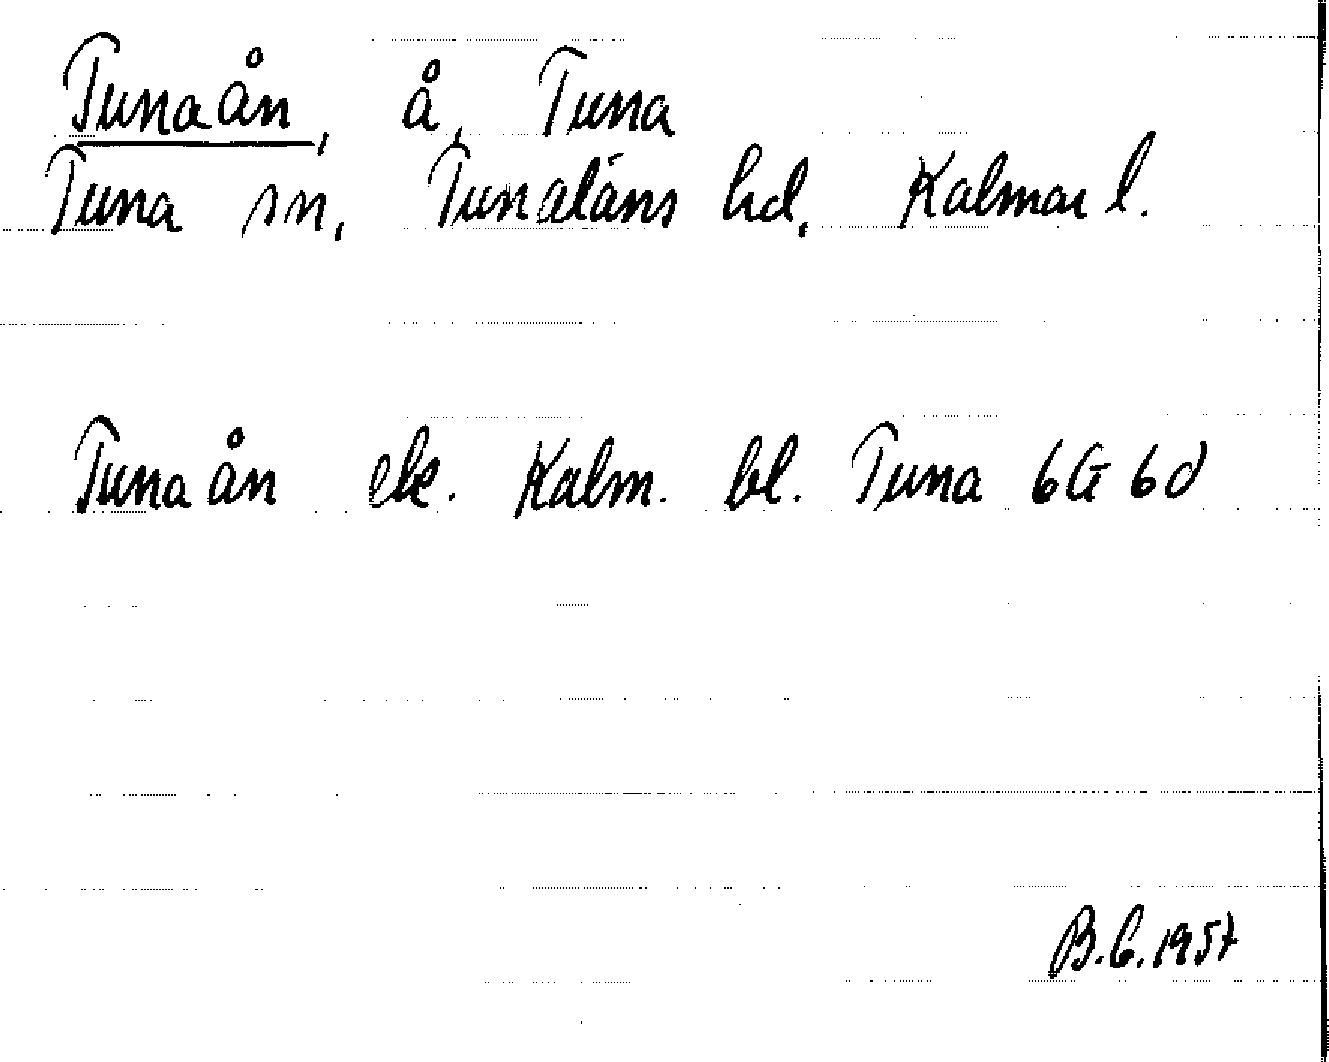 Tunaån, å, Tuna
Tuna sn, Tunaläns hd, Kalmar l.
Tunaån ek. Kalm. bl. Tuna 6G 6d
B.C. 1957